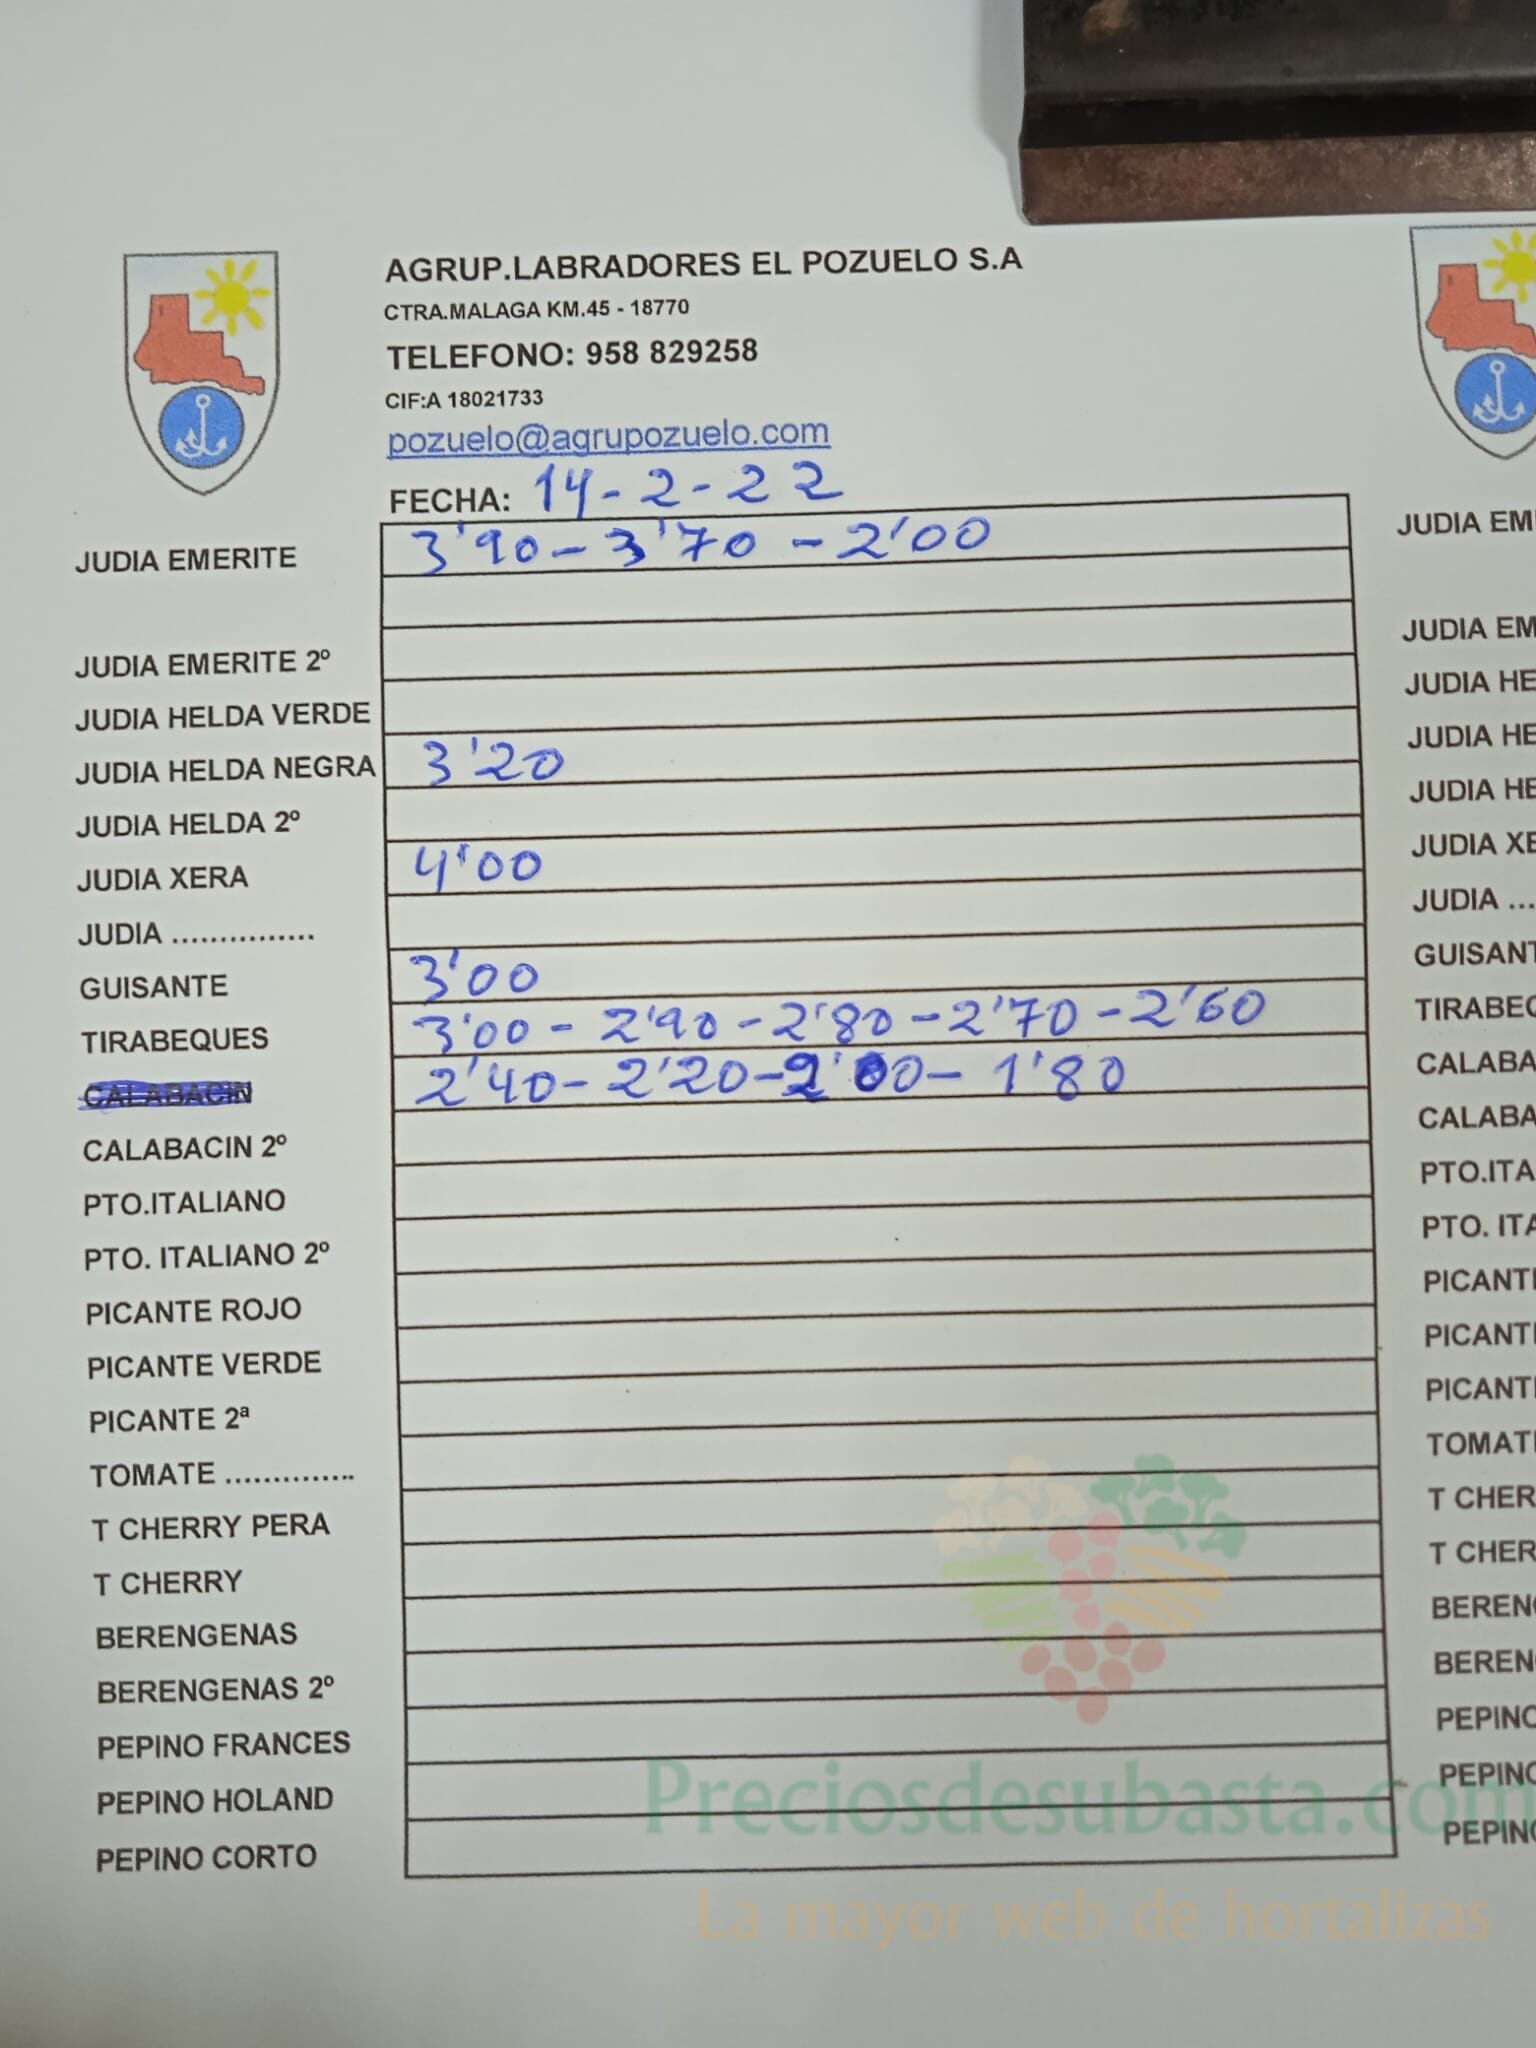 AGRUP.LABRADORES EL POZUELO S.A
CTRA.MALAGA KM.45 - 18770
TELEFONO: 958 829258
CIF:A 18021733
pozuelo@agrupozuelo.com
FECHA: 14-2-22
JUDIA EMERITE 3'90-3'70-2'00
JUDIA EMERITE 2º
JUDIA HELDA VERDE
JUDIA HELDA NEGRA 3'20
JUDIA HELDA 2º
JUDIA XERA 4'00
JUDIA ...............
GUISANTE 3'00
TIRABEQUES 3'00-2'90-2'80-2'70-2'60
CALABACIN 2'40-2'20-2'00-1'80
CALABACIN 2º
PTO.ITALIANO
PTO. ITALIANO 2º
PICANTE ROJO
PICANTE VERDE
PICANTE 2ª
TOMATE ..............
T CHERRY PERA
T CHERRY
BERENGENAS
BERENGENAS 2º
PEPINO FRANCES
PEPINO HOLAND
PEPINO CORTO
JUDIA EM
JUDIA EM
JUDIA HE
JUDIA HE
JUDIA HE
JUDIA XE
JUDIA ...
GUISANT
TIRABEQ
CALABA
CALABA
PTO.ITA
PTO. ITA
PICANT
PICANT
PICANT
TOMAT
T CHER
T CHER
BEREN
BEREN
PEPINO
PEPINO
PEPINO
Preciosdesubasta.com
La mayor web de hortalizas